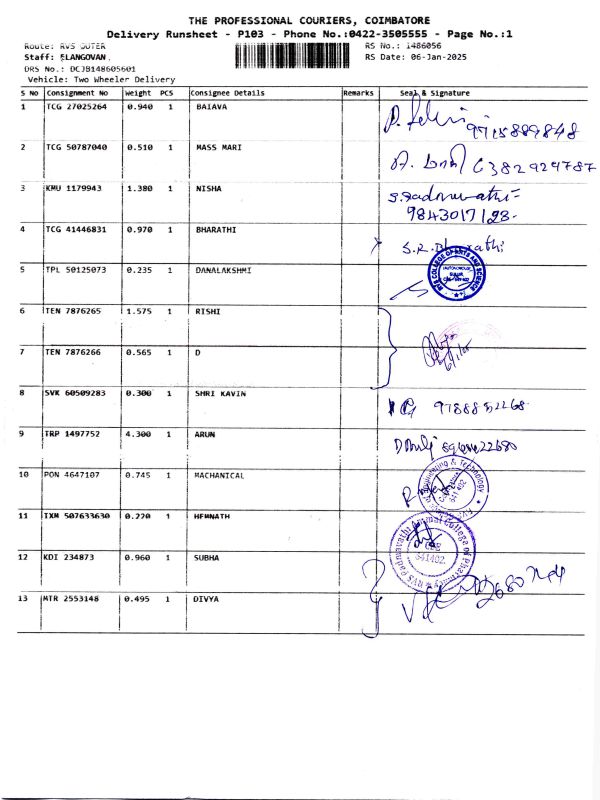 THE PROFESSIONAL COURIERS, COIMBATORE
Delivery Runsheet - P103 - Phone No.:0422-3505555 - Page No.:1
Route: RVS OUTER RS No.: 1486056
Staff: ELANGOVAN, RS Date: 06-Jan-2025
DRS No.: DCJB148605601
Vehicle: Two Wheeler Delivery
S No Consignment No Weight PCS Consignee Details Remarks Seal & Signature
1 TCG 27025264 0.940 1 BAIAVA
2 TCG 50787040 0.510 1 MASS MARI
6382929787
3 KMU 1179943 1.380 1 NISHA
S.Padmavathi
9843017123.
4 TCG 41446831 0.970 1 BHARATHI
S.R.Bharathi
5 TPL 50125073 0.235 1 DANALAKSHMI
RVS COLLEGE OF ARTS AND SCIENCE
(AUTONOMOUS)
SULUR
6 TEN 7876265 1.575 1 RISHI
7 TEN 7876266 0.565 1 D
8 SVK 60509283 0.300 1 SHRI KAVIN
9 TRP 1497752 4.300 1 ARUN
10 PON 4647107 0.745 1 MACHANICAL
641 402
11 TXM 507633630 0.220 1 HEMNATH
RVS Padmavathi Ammal College of Pharmacy
CBE
641402.
12 KDI 234873 0.960 1 SUBHA
13 MTR 2553148 0.495 1 DIVYA